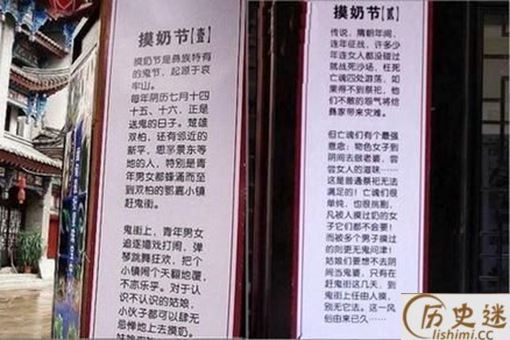 摸奶节【壹】
摸奶节是彝族特有
的鬼节，起源于哀
牢山。
每年阴历七月十四
十五、十六，正是
送鬼的日子。楚雄
双柏，还有邻近的
新平、思茅景东等
地的人，特别是青
年男女都蜂涌而至
到双柏的鄂嘉小镇
赶鬼街。
鬼街上，青年男女
追逐嬉戏打闹，弹
琴跳舞狂欢，把个
小镇闹个天翻地覆，
不亦乐乎。对于认
识不认识的姑娘，
小伙子都可以肆无
忌惮地上去摸奶。
摸奶节【贰】
传说，隋朝年间，
连年征战，许多少
年连女人都没碰过
就战死沙场，枉死
亡魂四处游荡，如
果得不到祭祀，他
们不散的怨气将给
彝家带来灾难。
但亡魂们有个最强
意念：物色女子到
阴间去做老婆，尝
尝女人的滋味……
这是普通祭祀无法
满足的！亡魂们很
单纯，也很挑剔，
凡被人摸过奶的女
子它们都不会要！
而被多个男子摸过
的则更无鬼问津！
姑娘们要想不去阴
间当鬼妻，只有在
赶鬼街这几天，到
鬼街上任由人摸，
别无它法。这一风
俗由来已久……
历史迷
lishimi.cc